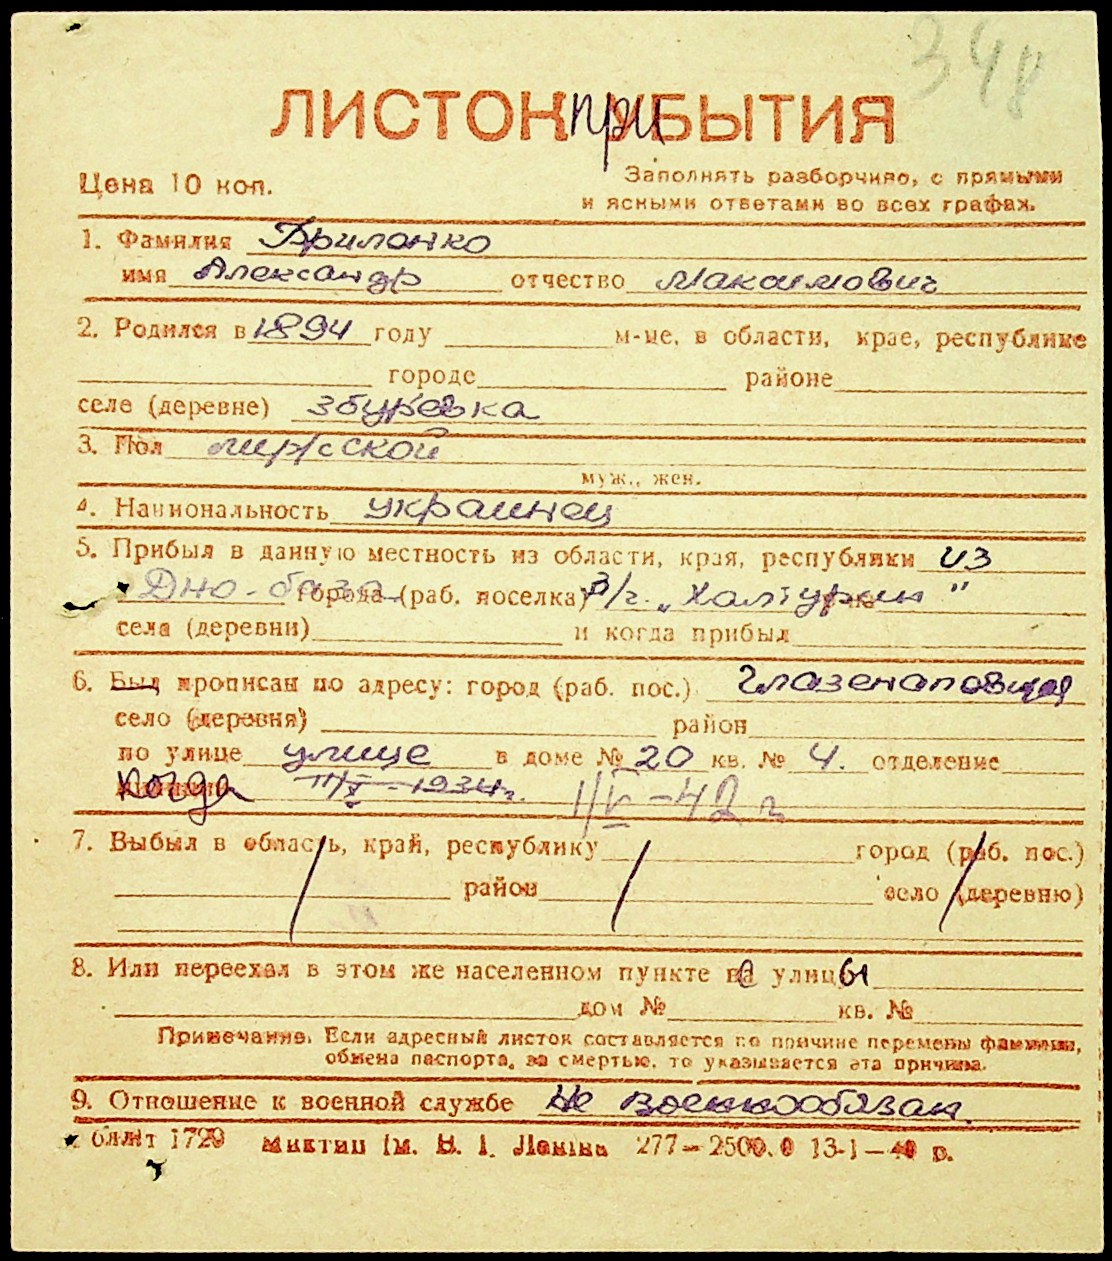 348
ЛИСТОК прибытия
Цена 10 коп.
Заполнять разборчиво, с прямыми
и ясными ответами во всех графах.
1. Фамилия Приланко
имя Александр отчество Максимович
2. Родился в 1894 году м-це, в области, крае, республике
городе районе
селе (деревне) Збурьевка
3. Пол мужской
муж., жен.
4. Национальность украинец
5. Прибыл в данную местность из области, края, республики из
Дно-база города (раб. поселка) З/г. „Халтурин"
села (деревни) и когда прибыл
6. Был прописан по адресу: город (раб. пос.) Глазенаповская
село (деревня) район
по улице улице в доме № 20 кв. № 4. отделение
когда 1934г. 1/V-42 г
7. Выбыл в область, край, республику город (раб. пос.)
район село (деревню)
8. Или переехал в этом же населенном пункте с улицы
дом № кв. №
Примечание. Если адресный листок составляется по причине перемены фамилии,
обмена паспорта, за смертью, то указывается эта причина.
9. Отношение к военной службе Не военнообязан.
бліт 1729 ім. В. І. Леніна 277—2500.0 13-1—40 р.